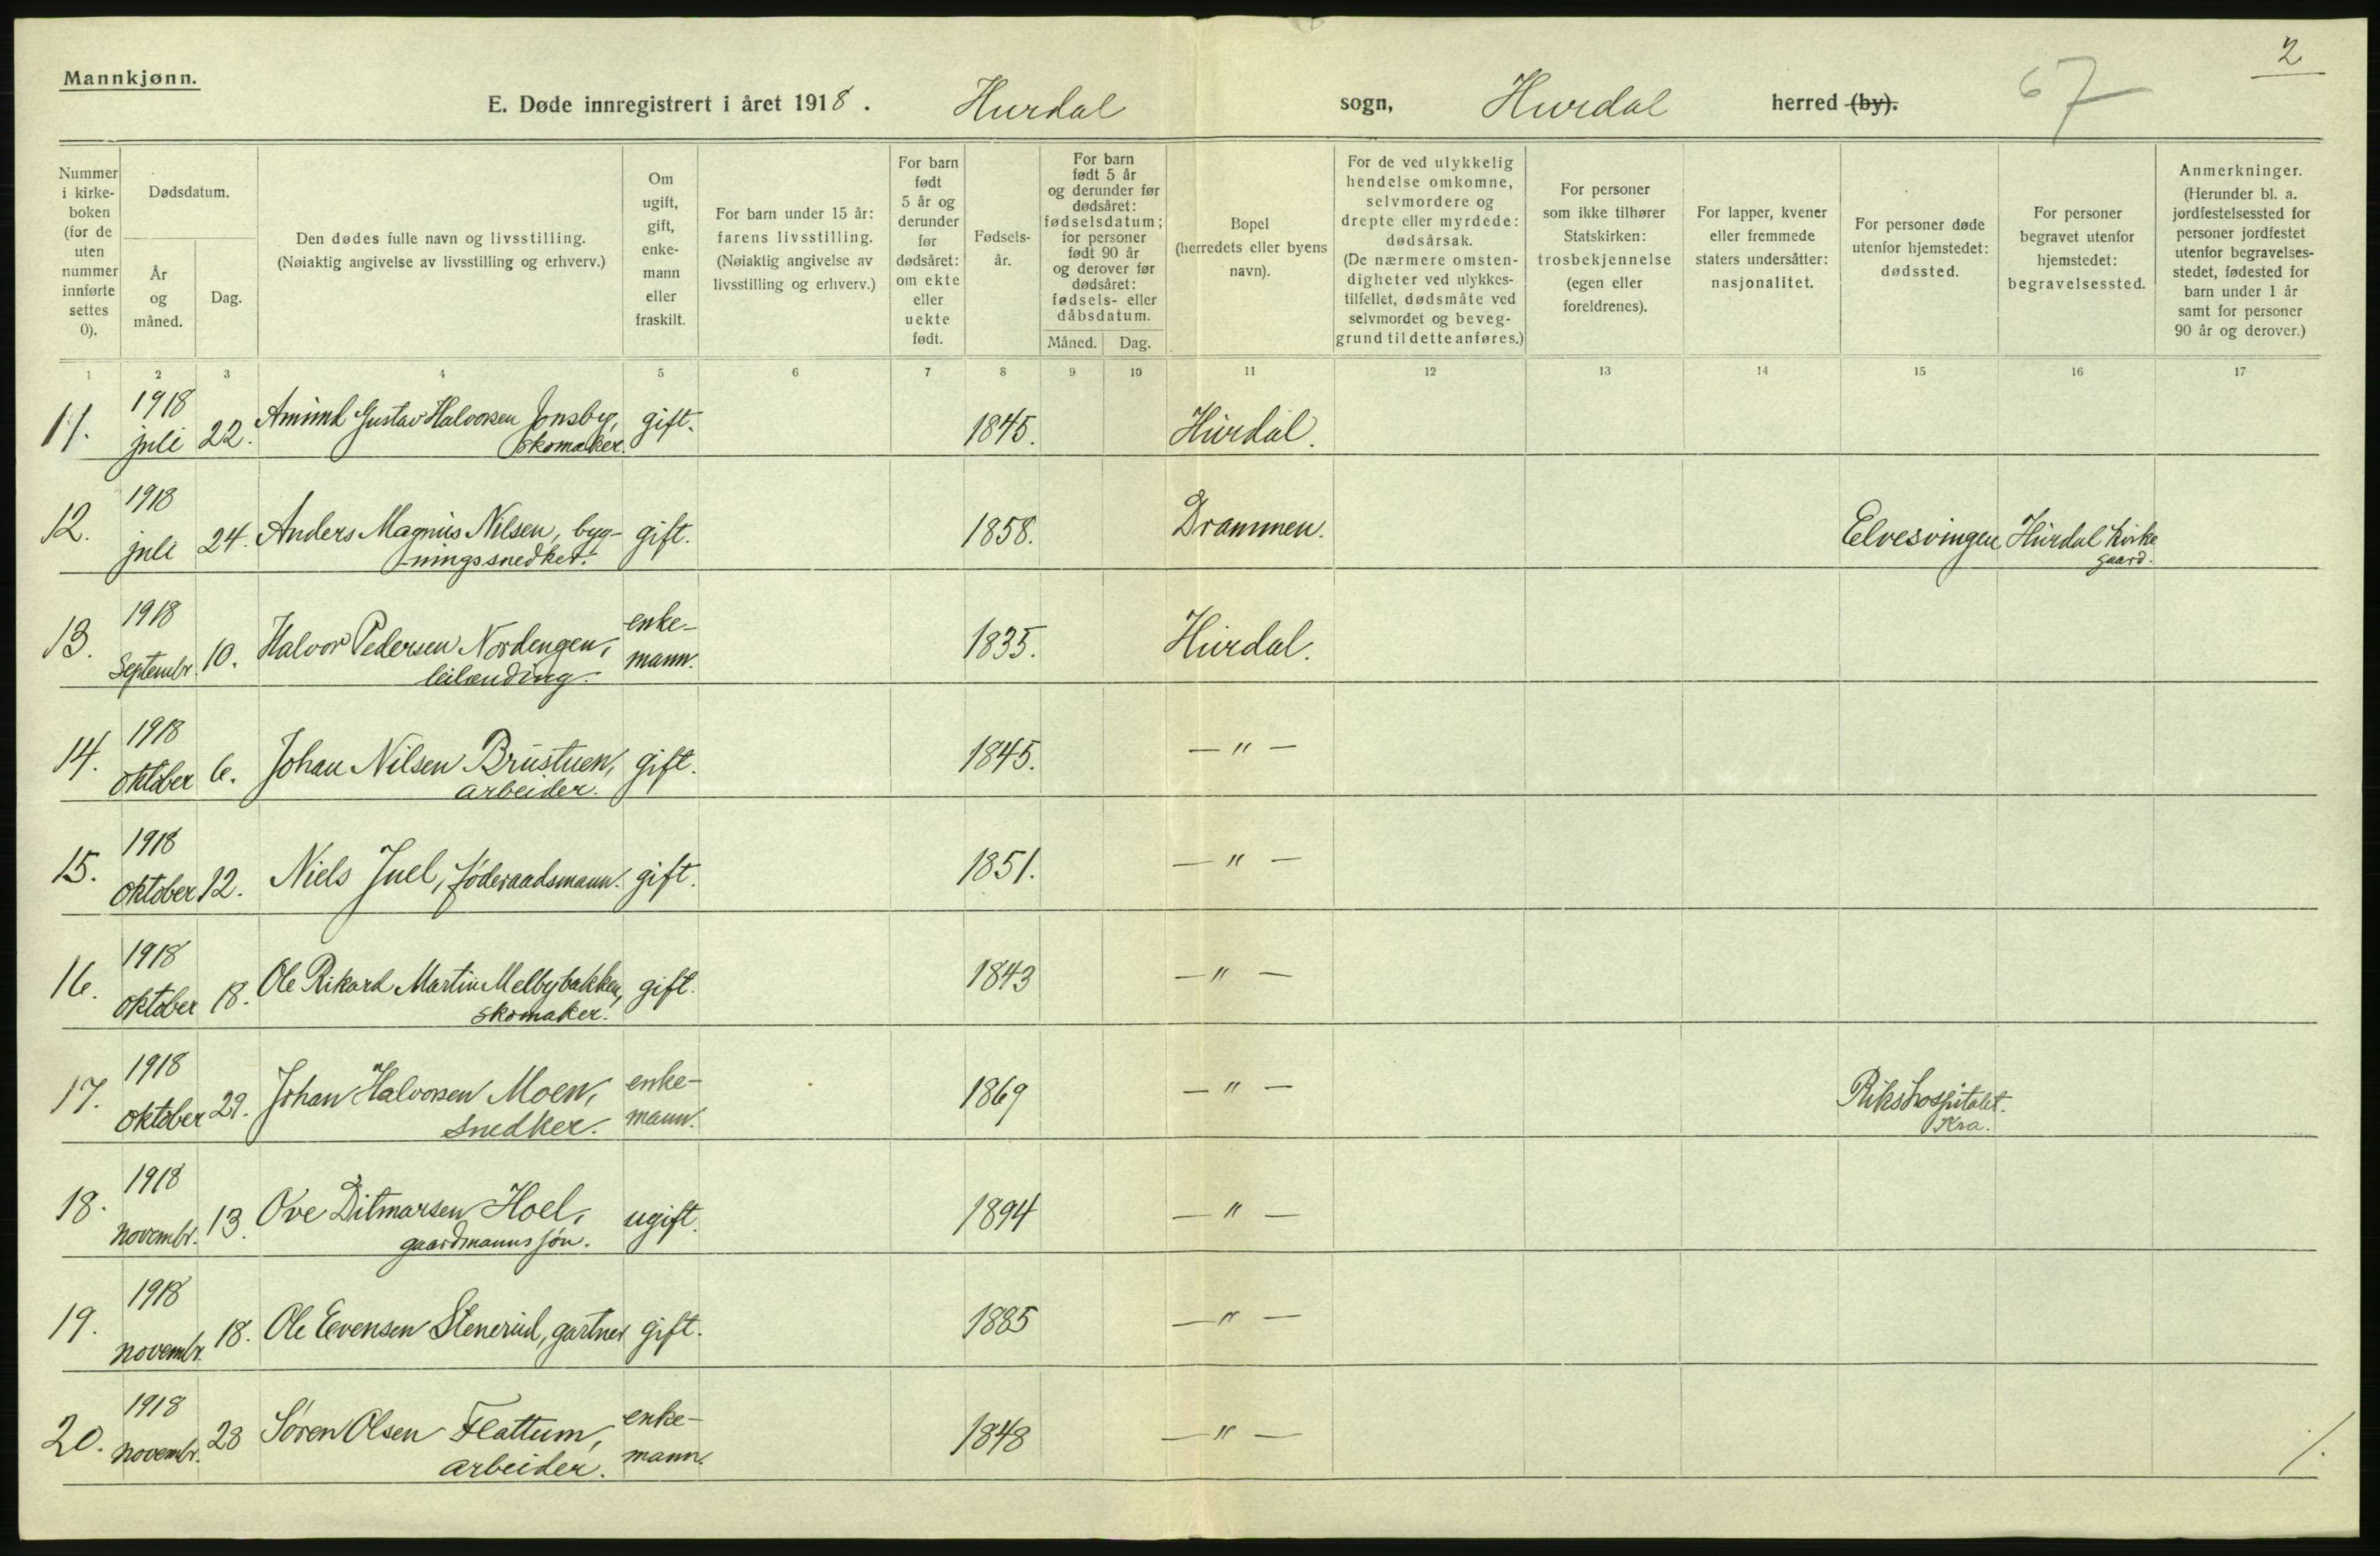 2
Mannkjønn.
67
E. Døde innregistrert i året 1918. Hurdal sogn, Hurdal herred (by).
Nummer i kirke-boken (for de uten nummer innførte settes 0).
Dødsdatum.
År og måned.
Dag.
Den dødes fulle navn og livsstilling.
(Nøiaktig angivelse av livsstilling og erhverv.)
Om ugift, gift, enke-mann eller fraskilt.
For barn under 15 år: farens livsstilling.
(Nøiaktig angivelse av livsstilling og erhverv.)
For barn født 5 år og derunder før dødsåret: om ekte eller uekte født.
Fødsels-år.
For barn født 5 år og derunder før dødsåret: fødselsdatum; for personer født 90 år og derover før dødsåret: fødsels- eller dåbsdatum.
Måned. Dag.
Bopel (herredets eller byens navn).
For de ved ulykkelig hendelse omkomne, selvmordere og drepte eller myrdede: dødsårsak.
(De nærmere omsten-digheter ved ulykkes-tilfellet, dødsmåte ved selvmordet og beveg-grund til dette anføres.)
For personer som ikke tilhører Statskirken: trosbekjennelse (egen eller foreldrenes).
For lapper, kvener eller fremmede staters undersåtter: nasjonalitet.
For personer døde utenfor hjemstedet: dødssted.
For personer begravet utenfor hjemstedet: begravelsessted.
Anmerkninger.
(Herunder bl. a. jordfestelsessted for personer jordfestet utenfor begravelses-stedet, fødested for barn under 1 år samt for personer 90 år og derover.)
1 2 3 4 5 6 7 8 9 10 11 12 13 14 15 16 17
11. 1918 juli 22. Amund Gustav Halvorsen Jonsby, skomaker. gift. 1845. Hurdal.
12. 1918 juli 24. Anders Magnus Nilsen, byg-ningssnedker. gift. 1858. Drammen. Elvesvingen Hurdal Kirke gaard.
13. 1918 Septembr. 10. Halvor Pedersen Nordengen, leilænding. enke-mann. 1835. Hurdal.
14. 1918 oktober 6. Johan Nilsen Brustuen, arbeider. gift. 1845. — " —
15. 1918 oktober 12. Niels Juel, føderaadsmann. gift. 1851. — " —
16. 1918 oktober 18. Ole Rikard Martin Melbybakken, skomaker. gift. 1843 — " —
17. 1918 oktober 29. Johan Halvorsen Moen, snedker. enke-mann. 1869 — " — Rikshospitalet. Kra.
18. 1918 novembr. 13. Ove Ditmarsen Hoel, gaardmanns søn. ugift. 1894 — " —
19. 1918 novembr. 18. Ole Evensen Stenerud, gartner gift. 1885 — " —
20. 1918 novembr. 28 Søren Olsen Flattum, arbeider. enke-mann. 1848 — " —